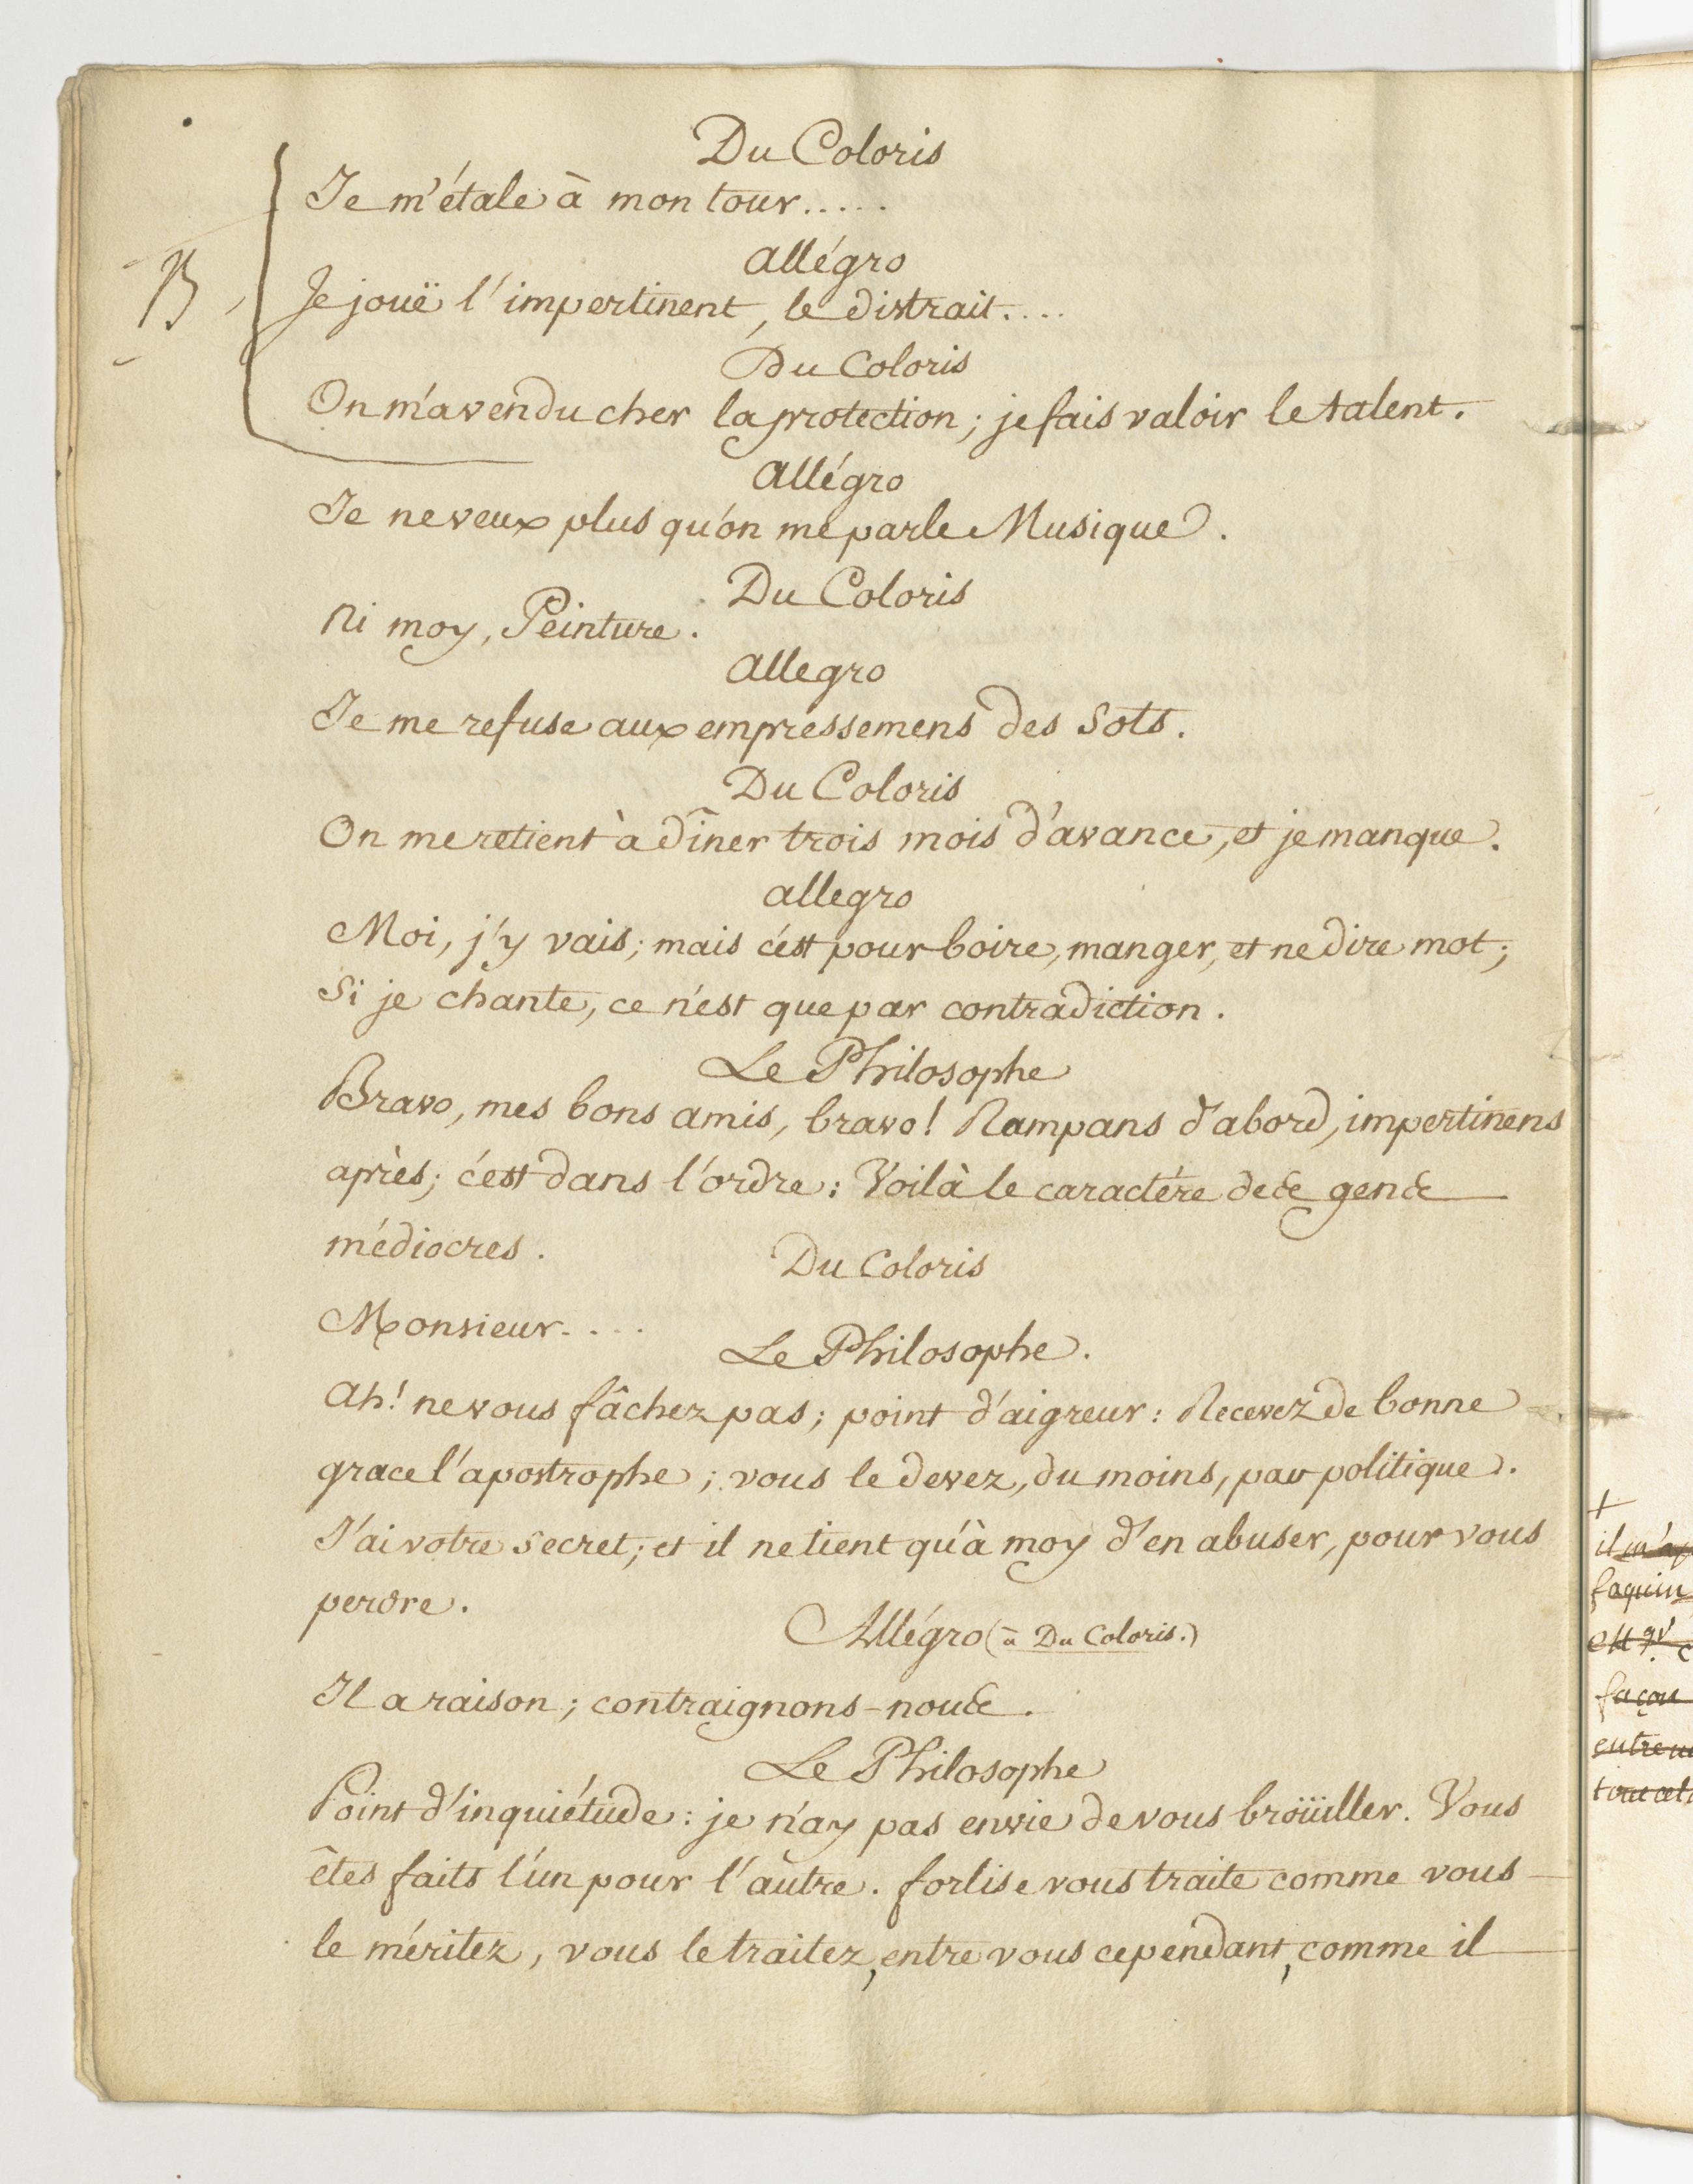 Du Coloris
Je m'étale à mon tour.....
allégro
B
Je jouë l'impertinent, le distrait....
Du Coloris
On m'a vendu cher la protection; je fais valoir le talent.
allégro
Je ne veux plus qu'on me parle Musique.
Du Coloris
Ni moy, Peinture.
allegro
Je me refuse aux empressemens des Sots.
Du Coloris
On me retient à dîner trois mois d'avance, et je manque.
allegro
Moi, j'y vais; mais c'est pour boire, manger, et ne dire mot;
Si je chante, ce n'est que par contradiction.
Le Philosophe
Bravo, mes bons amis, bravo! Rampans d'abord, impertinens
après; c'est dans l'ordre: Voilà le caractére des gens
médiocres.
Du Coloris
Monsieur....
Le Philosophe.
Ah! ne vous fâchez pas; point d'aigreur: Recevez de bonne
grace l'apostrophe; vous le devez, du moins, par politique.
J'ai votre secret; et il ne tient qu'à moy d'en abuser, pour vous
perdre.
Allégro (à Du Coloris.)
Il a raison; contraignons-nous.
Le Philosophe
Point d'inquiétude: je n'ay pas envie de vous broüiller. Vous
êtes faits l'un pour l'autre. forlise vous traite comme vous
le méritez, vous le traitez, entre vous cependant, comme il
+
faquin
façon